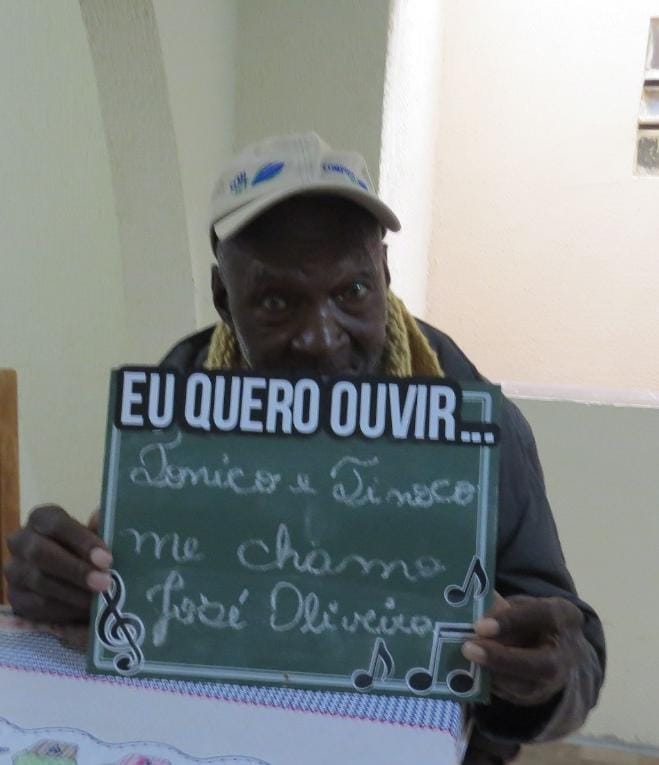 EU QUERO OUVIR...
Tonico e Tinoco
me chamo
José Oliveira